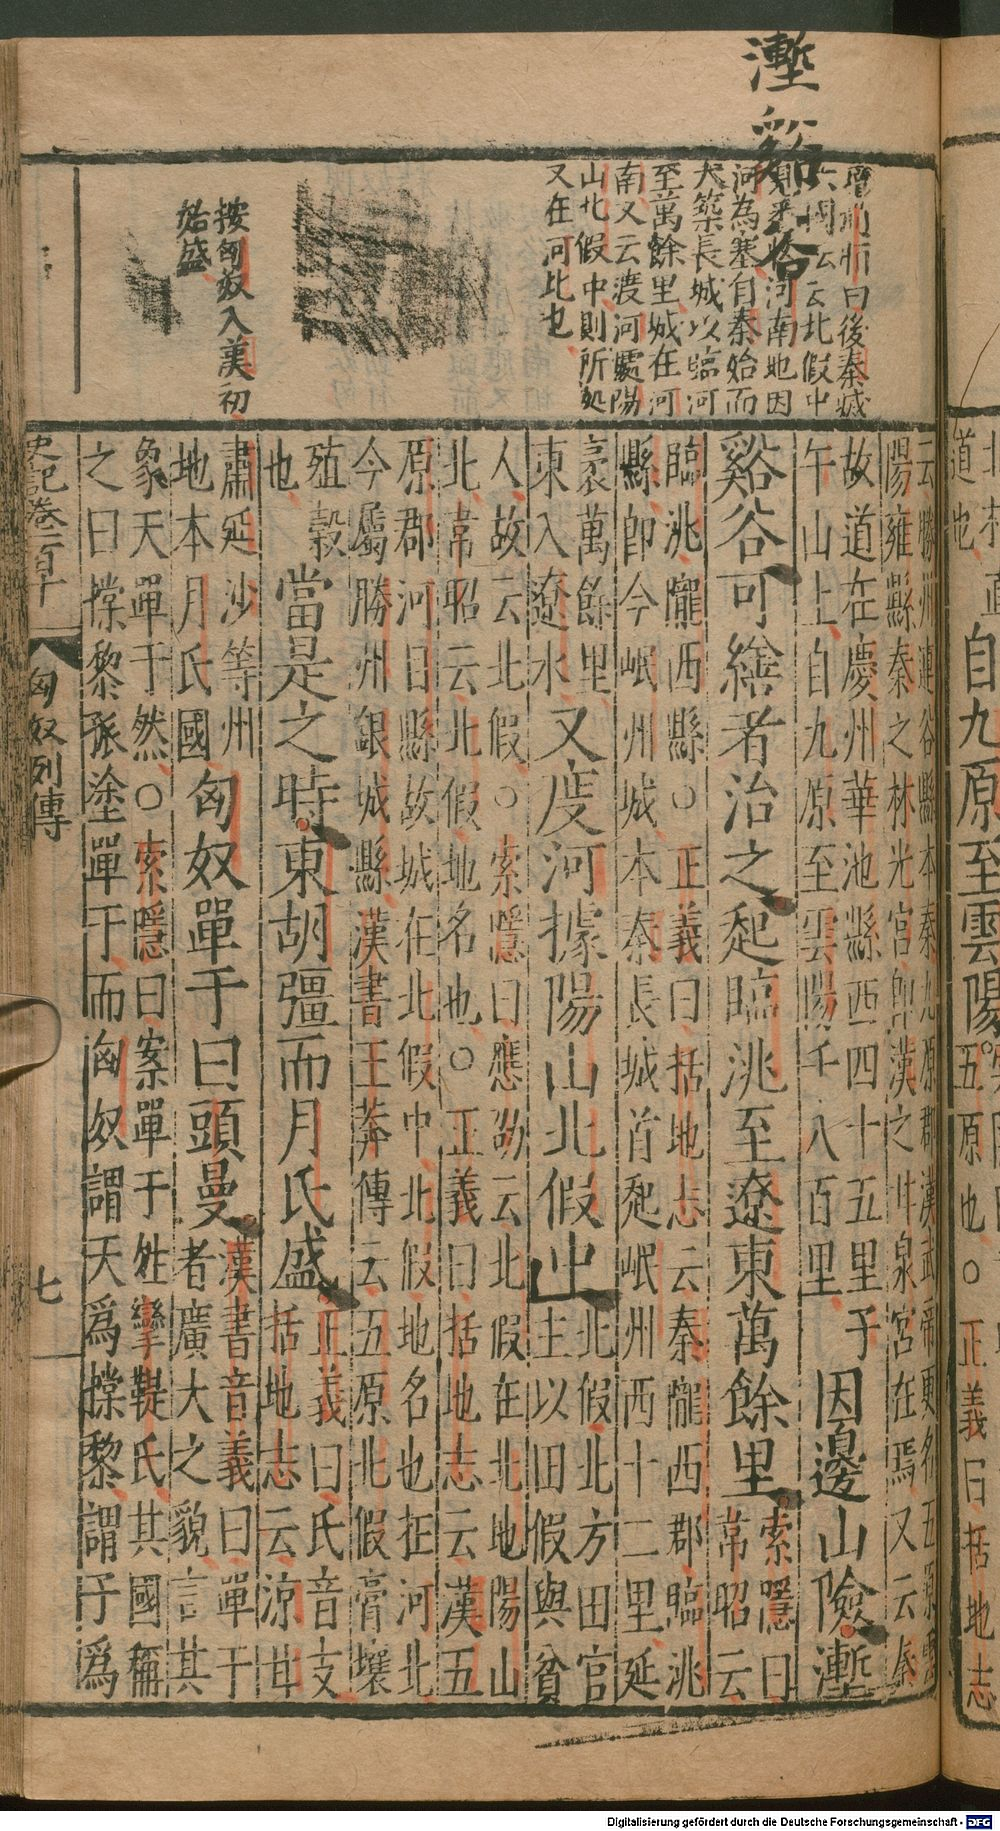 塹谿谷
曰後秦滅
六國云云北假中
河南地因
河為塞自秦始而
大築長城以臨河
至萬餘里城在河
南又云渡河處陽
山北假中則所如
又在河北也
按匈奴入漢初
始盛
云勝州連谷縣本秦九原郡漢武帝更名五原雲
陽雍縣秦之林光宮即漢之甘泉宮在焉又云秦
故道在慶州華池縣西四十五里子
午山上自九原至雲陽千八百里
因邊山險塹
谿谷可繕者治之起臨洮至遼東萬餘里
索隱曰
韋昭云
臨洮隴西縣○正義曰括地志云秦隴西郡臨洮
縣即今岷州城本秦長城首起岷州西十二里延
袤萬餘里
東入遼水
又度河據陽山北假中
北假北方田官
主以田假與貧
人故云北假○索隱曰應劭云北假在北地陽山
北韋昭云北假地名也○正義曰括地志云漢五
原郡河目縣故城在北假中北假地名也在河北
今屬勝州銀城縣漢書王莽傳云五原北假膏壤
殖穀
也
當是之時東胡彊而月氏盛
正義曰氏音支
括地志云涼甘
肅延沙等州
地本月氏國
匈奴單于曰頭曼
漢書音義曰單于
者廣大之貌言其
象天單于然○索隱曰案單于姓攣鞮氏其國稱
之曰撐黎孤塗單于而匈奴謂天爲撐黎謂子爲
史記卷一百十
匈奴列傳
七
自九原至雲陽
道也
五原也○正義曰括地志
Digitalisierung gefördert durch die Deutsche Forschungsgemeinschaft - DFG